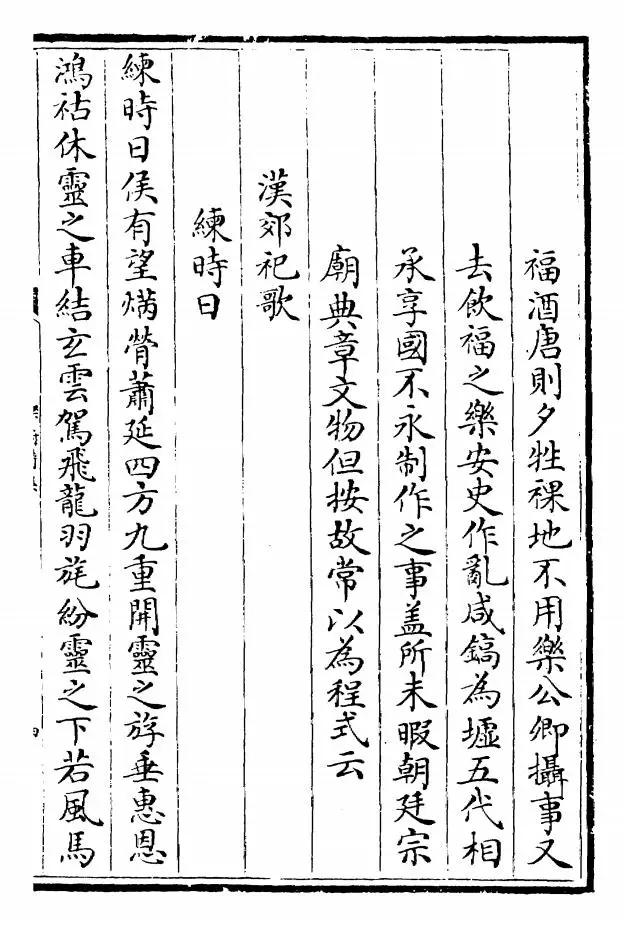 福酒唐則夕牲祼地不用樂公卿攝事又
去飲福之樂安史作亂咸鎬為墟五代相
承享國不永制作之事盖所未暇朝廷宗
廟典章文物但按故常以為程式云
漢郊祀歌
練時日
練時日侯有望焫膋蕭延四方九重開靈之斿垂惠恩
鴻祜休靈之車結玄雲駕飛龍羽旄紛靈之下若風馬